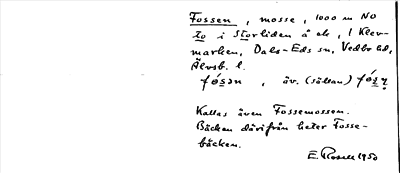 Fossen, mosse, 1000 m NO
to i Storliden å ek, i Klev-
marken, Dals-Eds sn, Vedbo hd,
Älvsb. l.
fósən, äv. (sällan) fós
Kallas även Fossemossen.
Bäcken därifrån heter Fosse-
bäcken.
E. Rosell 1950